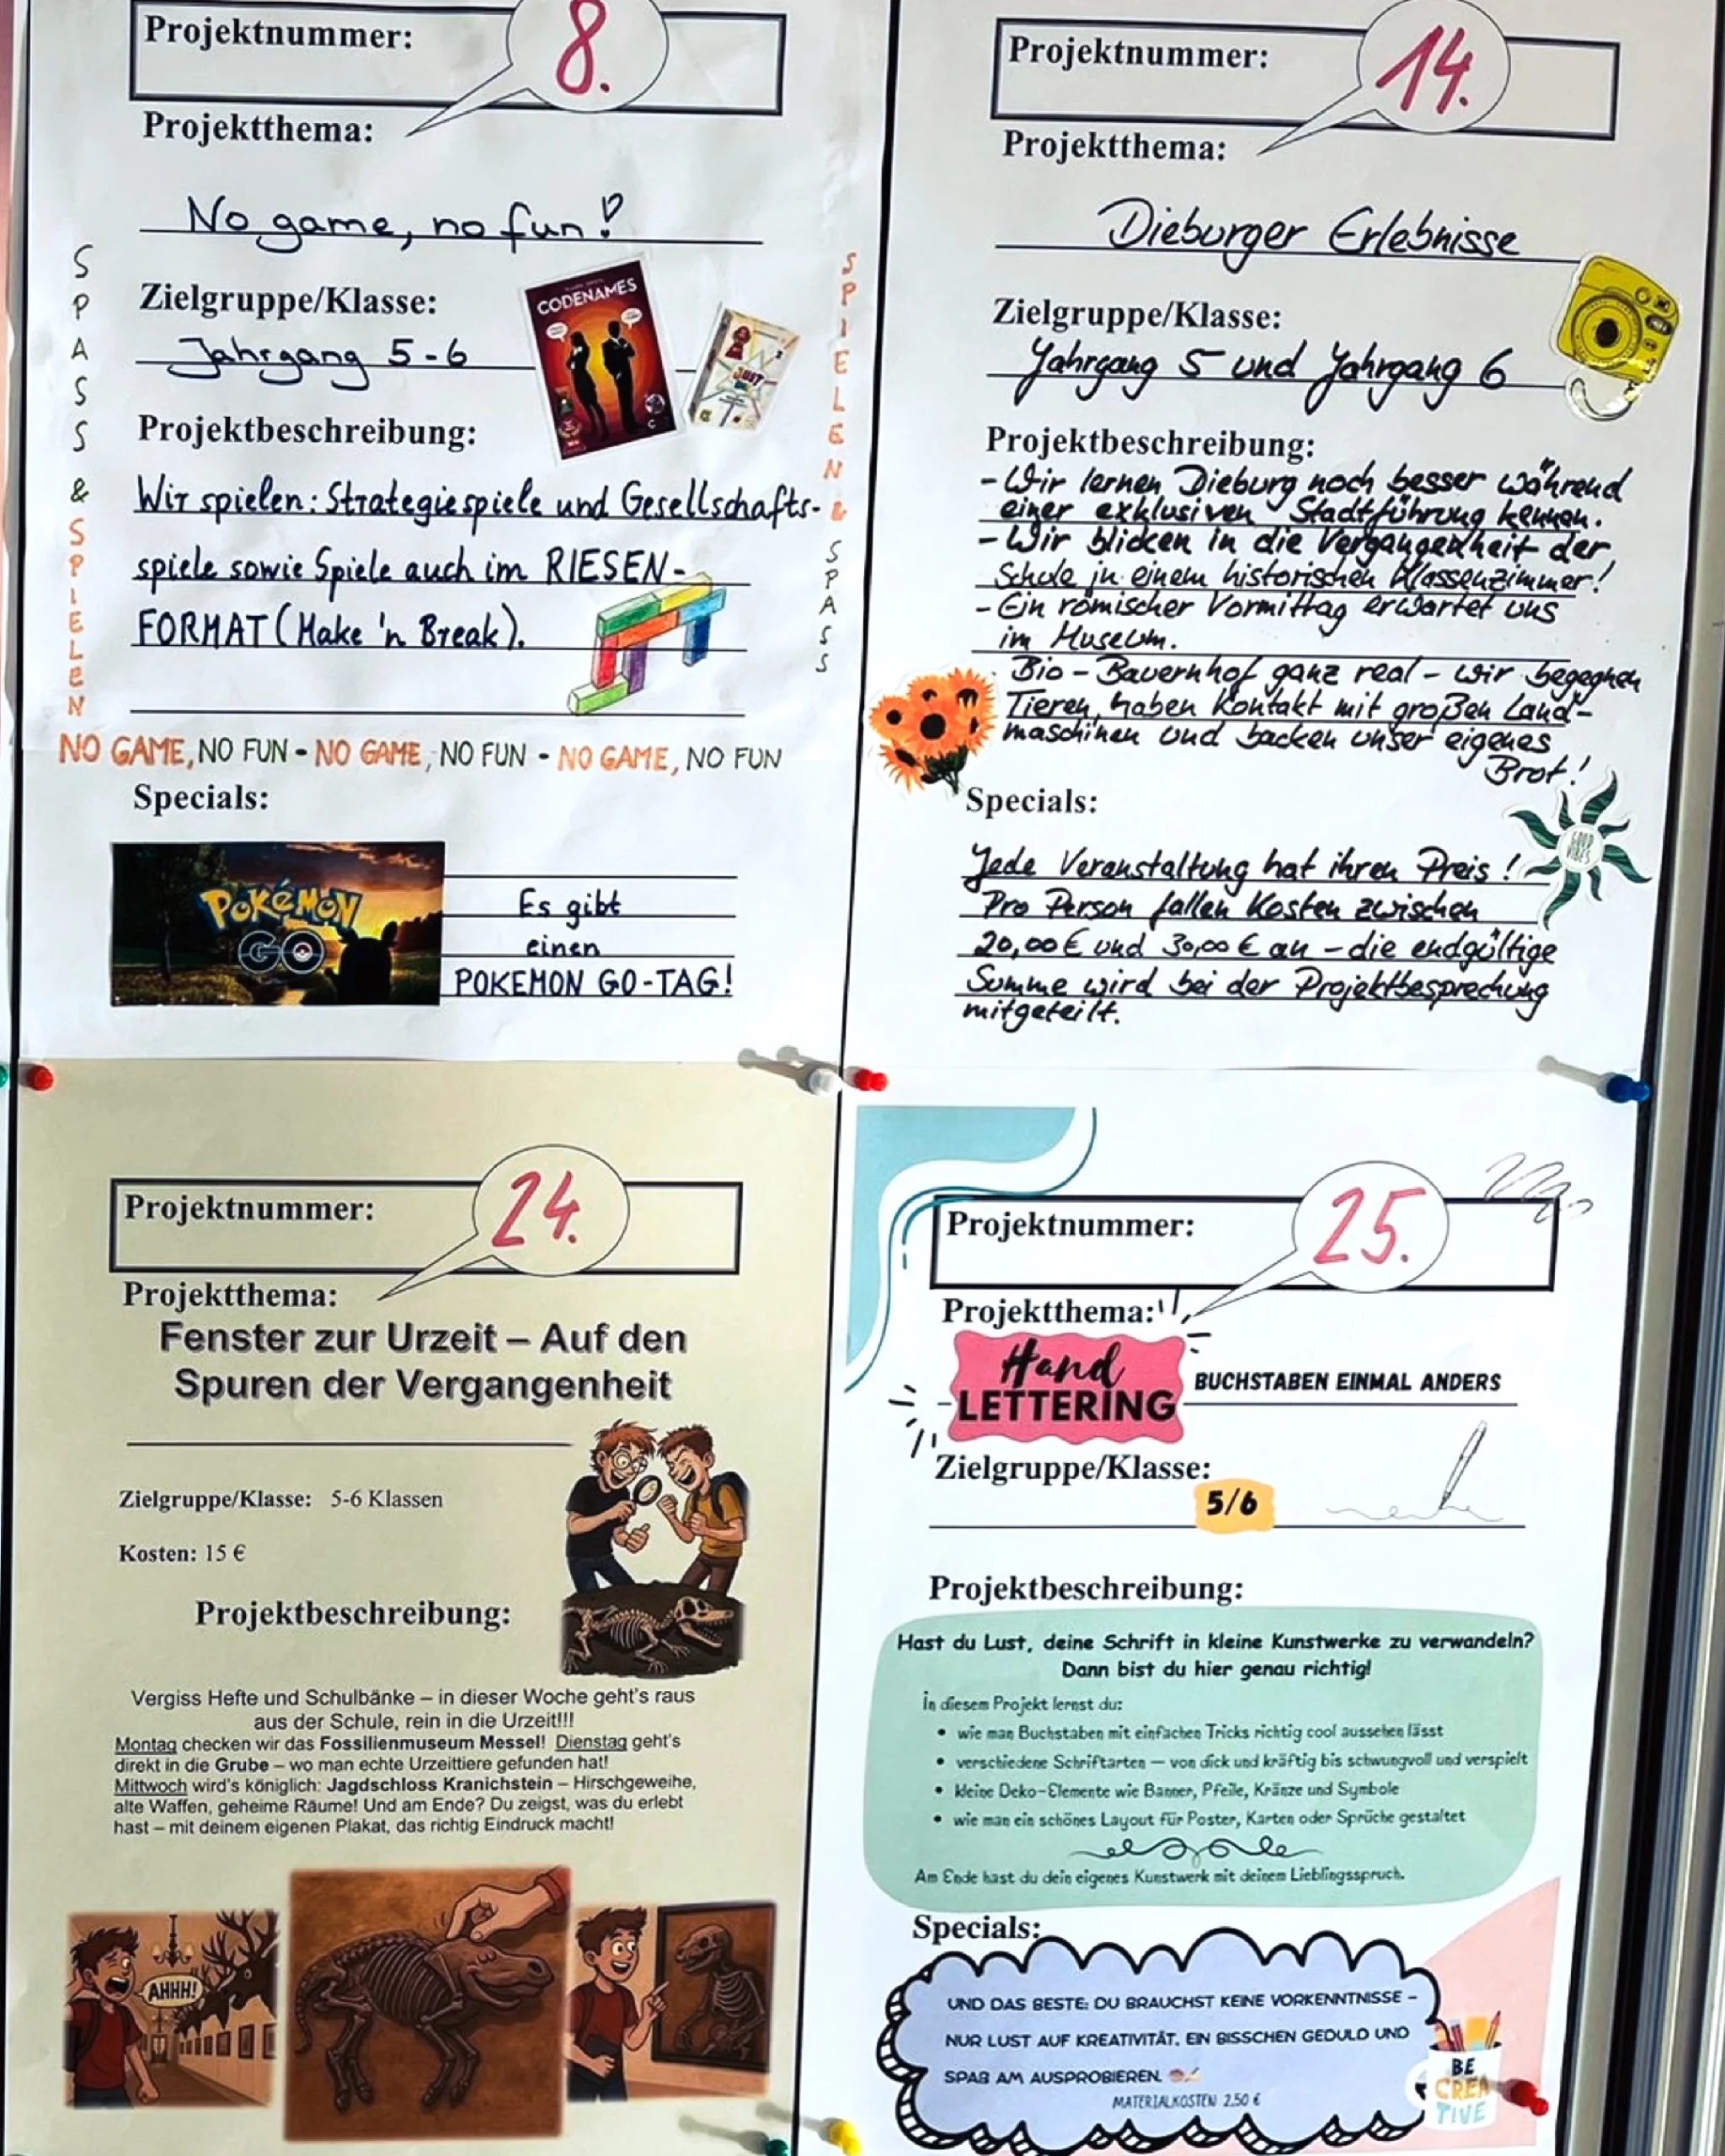 Projektnummer:
8.
Projektthema:
No game, no fun!
Zielgruppe/Klasse:
Jahrgang 5-6
CODENAMES
JUST
Projektbeschreibung:
Wir spielen: Strategiespiele und Gesellschafts-
spiele sowie Spiele auch im RIESEN-
FORMAT (Make 'n Break).
SPASS & SPIELEN
SPIELEN & SPASS
NO GAME, NO FUN - NO GAME, NO FUN - NO GAME, NO FUN
Specials:
POKéMON
GO
Es gibt
einen
POKEMON GO-TAG!
Projektnummer:
14.
Projektthema:
Dieburger Erlebnisse
Zielgruppe/Klasse:
Jahrgang 5 und Jahrgang 6
Projektbeschreibung:
- Wir lernen Dieburg noch besser während
einer exklusiven Stadtführung kennen.
- Wir blicken in die Vergangenheit der
Schule in einem historischen Klassenzimmer!
- Ein römischer Vormittag erwartet uns
im Museum.
- Bio-Bauernhof ganz real - wir begegnen
Tieren, haben Kontakt mit großen Land-
maschinen und backen unser eigenes
Brot!
Specials:
GOOD
VIBES
Jede Veranstaltung hat ihren Preis!
Pro Person fallen Kosten zwischen
20,00 € und 30,00 € an - die endgültige
Summe wird bei der Projektbesprechung
mitgeteilt.
Projektnummer:
24.
Projektthema:
Fenster zur Urzeit – Auf den
Spuren der Vergangenheit
Zielgruppe/Klasse: 5-6 Klassen
Kosten: 15 €
Projektbeschreibung:
Vergiss Hefte und Schulbänke – in dieser Woche geht's raus
aus der Schule, rein in die Urzeit!!!
Montag checken wir das Fossilienmuseum Messel! Dienstag geht's
direkt in die Grube – wo man echte Urzeittiere gefunden hat!
Mittwoch wird's königlich: Jagdschloss Kranichstein – Hirschgeweihe,
alte Waffen, geheime Räume! Und am Ende? Du zeigst, was du erlebt
hast – mit deinem eigenen Plakat, das richtig Eindruck macht!
AHHH!
Projektnummer:
25.
Projektthema:
Hand
LETTERING
BUCHSTABEN EINMAL ANDERS
Zielgruppe/Klasse:
5/6
Projektbeschreibung:
Hast du Lust, deine Schrift in kleine Kunstwerke zu verwandeln?
Dann bist du hier genau richtig!
In diesem Projekt lernst du:
• wie man Buchstaben mit einfachen Tricks richtig cool aussehen lässt
• verschiedene Schriftarten — von dick und kräftig bis schwungvoll und verspielt
• kleine Deko-Elemente wie Banner, Pfeile, Kränze und Symbole
• wie man ein schönes Layout für Poster, Karten oder Sprüche gestaltet
Am Ende hast du dein eigenes Kunstwerk mit deinem Lieblingsspruch.
Specials:
UND DAS BESTE: DU BRAUCHST KEINE VORKENNTNISSE –
NUR LUST AUF KREATIVITÄT, EIN BISSCHEN GEDULD UND
SPAß AM AUSPROBIEREN.
MATERIALKOSTEN 2,50 €
BE
CREA
TIVE